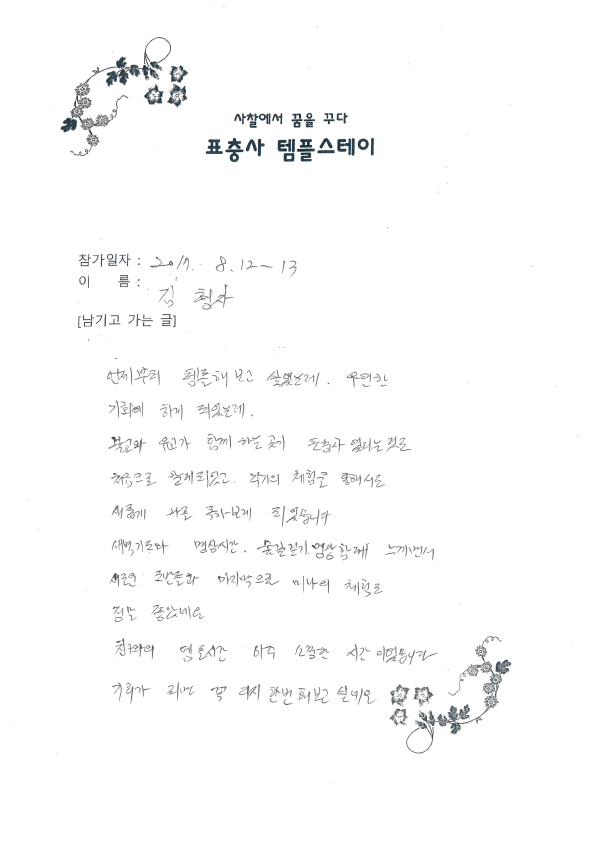 사찰에서 꿈을 꾸다
표충사 템플스테이
참가일자 : 2017. 8. 12 ~ 13
이 름 : 김
[남기고 가는 글]
언제부터 템플해보고 싶었는데. 우연한
기회에 하게 되었는데.
불교와 유교가 함께 하는 곳이 표충사 였다는 것을
처음으로 알게되었고. 각가의 체험을 통해서도
새롭게 나를 보게 되었습니다
새벽기도와 명상시간. 숲길걷기 명상 함께 느끼면서
새로운 도반들과 마지막으로 체험도
정말 좋았네요
친구와의 템플시간 아주 소중한 시간이었습니다
기회가 되면 꼭 다시 한번 해보고 싶네요